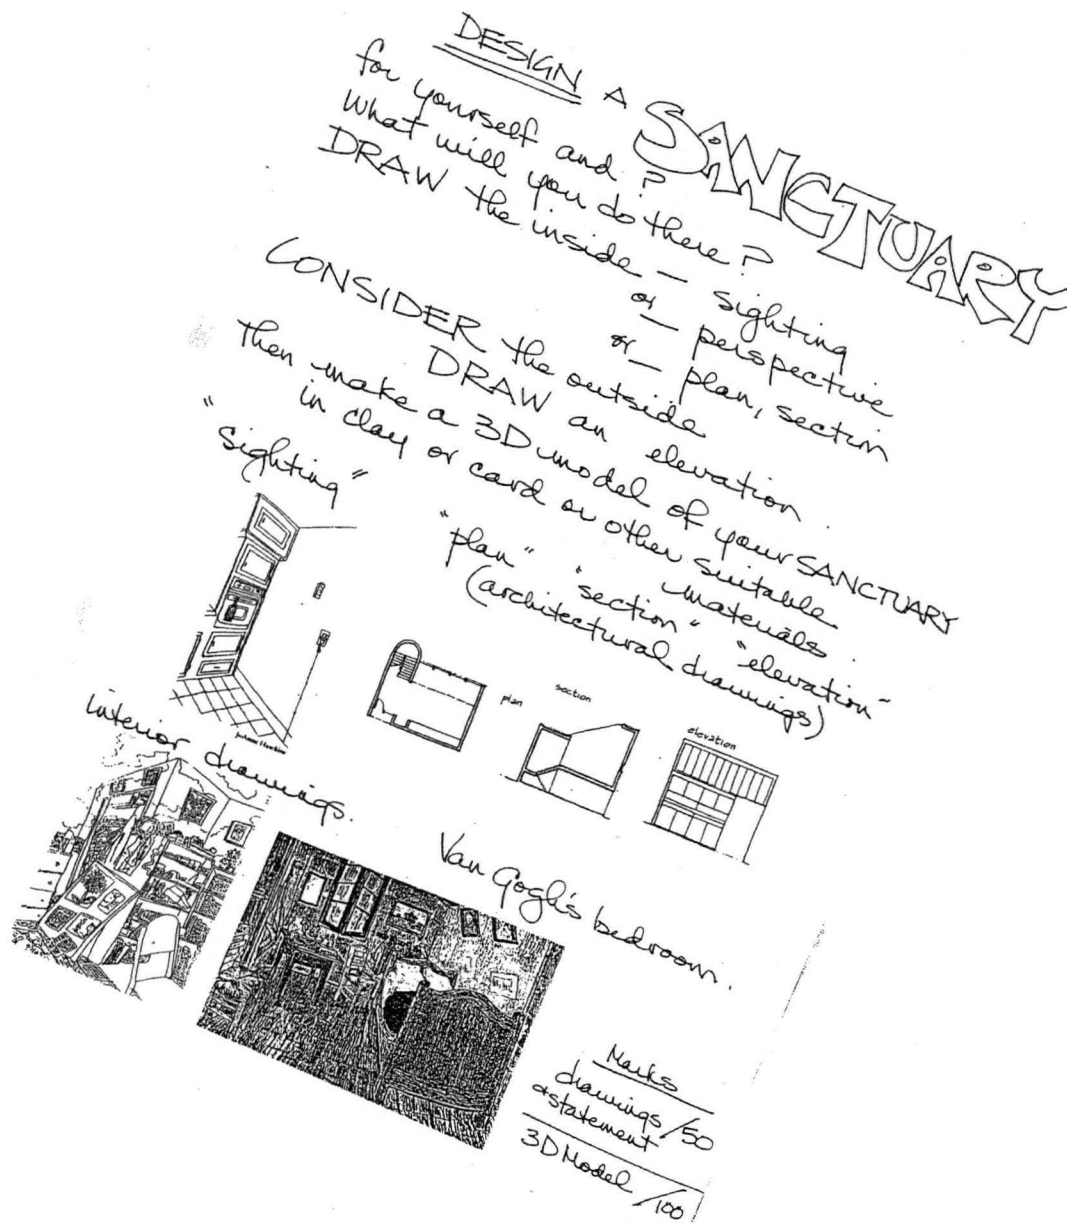 DESIGN A SANCTUARY
for yourself and ?
What will you do there ?
DRAW the inside — sighting
or — perspective
or — plan, section
CONSIDER the outside
DRAW an elevation.
Then make a 3D model of your SANCTUARY
in clay or card or other suitable
materials.
"Sighting"
"plan" "section" "elevation"
(architectural drawings)
plan
section
elevation
interior drawings.
Van Gogh's bedroom.
Marks
drawings /50
& statement
3D Model /100